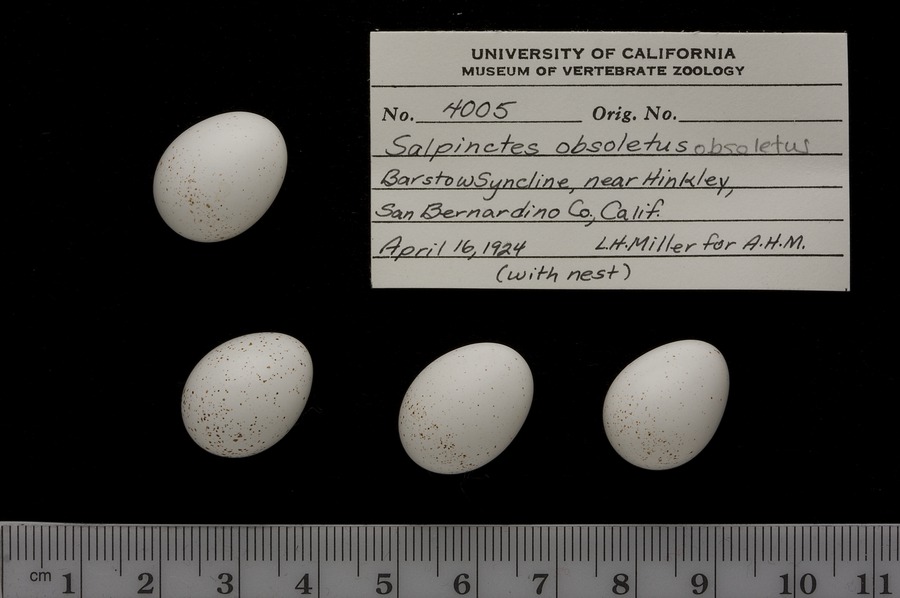 UNIVERSITY OF CALIFORNIA
MUSEUM OF VERTEBRATE ZOOLOGY
No. 4005 Orig. No.
Salpinctes obsoletus obsoletus
Barstow Syncline, near Hinkley,
San Bernardino Co., Calif.
April 16, 1924 L.H. Miller for A.H.M.
(with nest)
cm 1 2 3 4 5 6 7 8 9 10 11